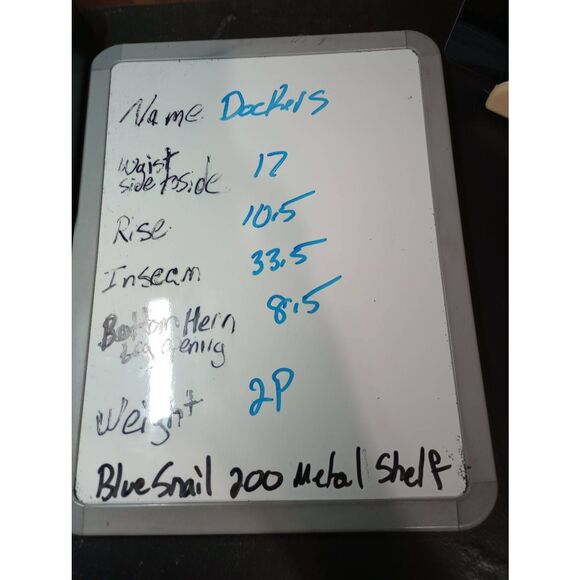 Name Dockers
Waist 17
side to side
Rise 10.5
Inseam 33.5
Bottom Hem 8.5
Leg Opening
Weight 2P
Blue Snail 200 Metal Shelf